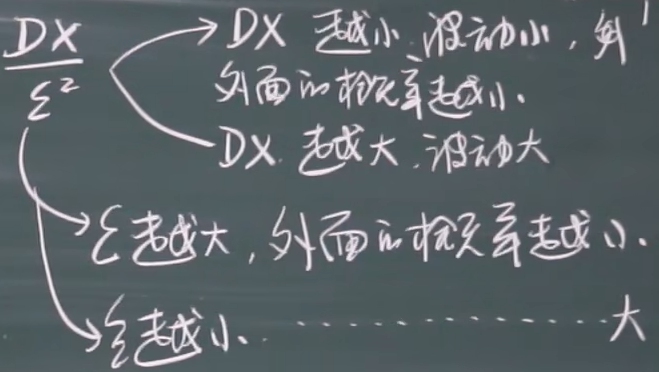 DX/ε²
DX 越小.波动小，到
外面的概率越小.
DX.越大.波动大
ε越大，外面的概率越小.
ε越小. ················大